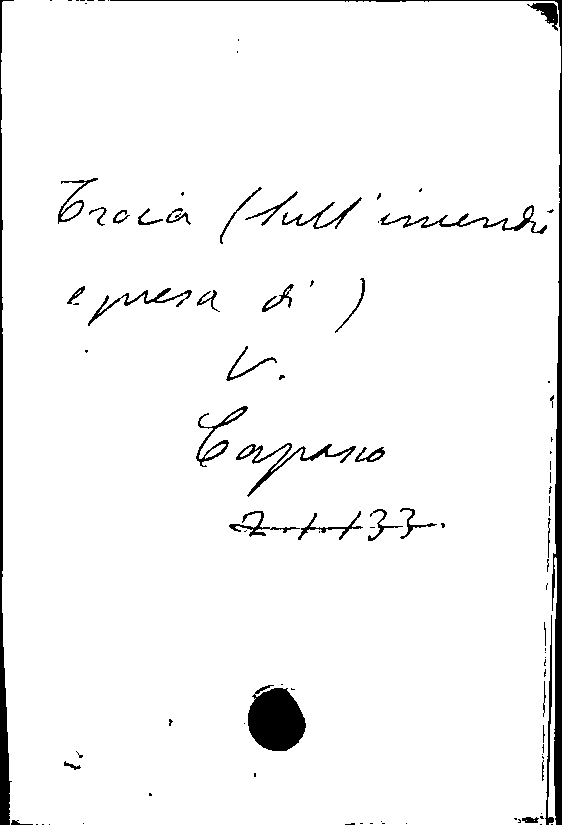 Troia (sull'incendi
e presa di)
V.
Capasso
Z.1.133.